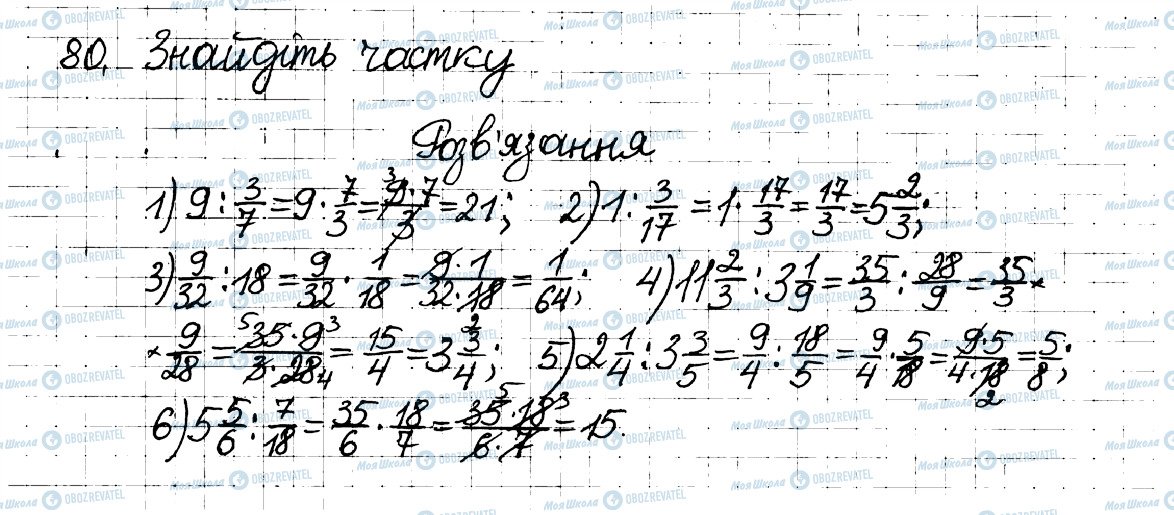 80. Знайдіть частку
Розв'язання
1) 9 : 3/7 = 9 · 7/3 = 9·7/3 = 21; 2) 1 : 3/17 = 1 · 17/3 = 17/3 = 5 2/3;
3) 9/32 : 18 = 9/32 · 1/18 = 9·1/32·18 = 1/64; 4) 11 2/3 : 3 1/9 = 35/3 : 28/9 = 35/3 ×
× 9/28 = 35·9/3·28 = 15/4 = 3 3/4; 5) 2 1/4 : 3 3/5 = 9/4 : 18/5 = 9/4 · 5/18 = 9·5/4·18 = 5/8;
6) 5 5/6 : 7/18 = 35/6 · 18/7 = 35·18/6·7 = 15.